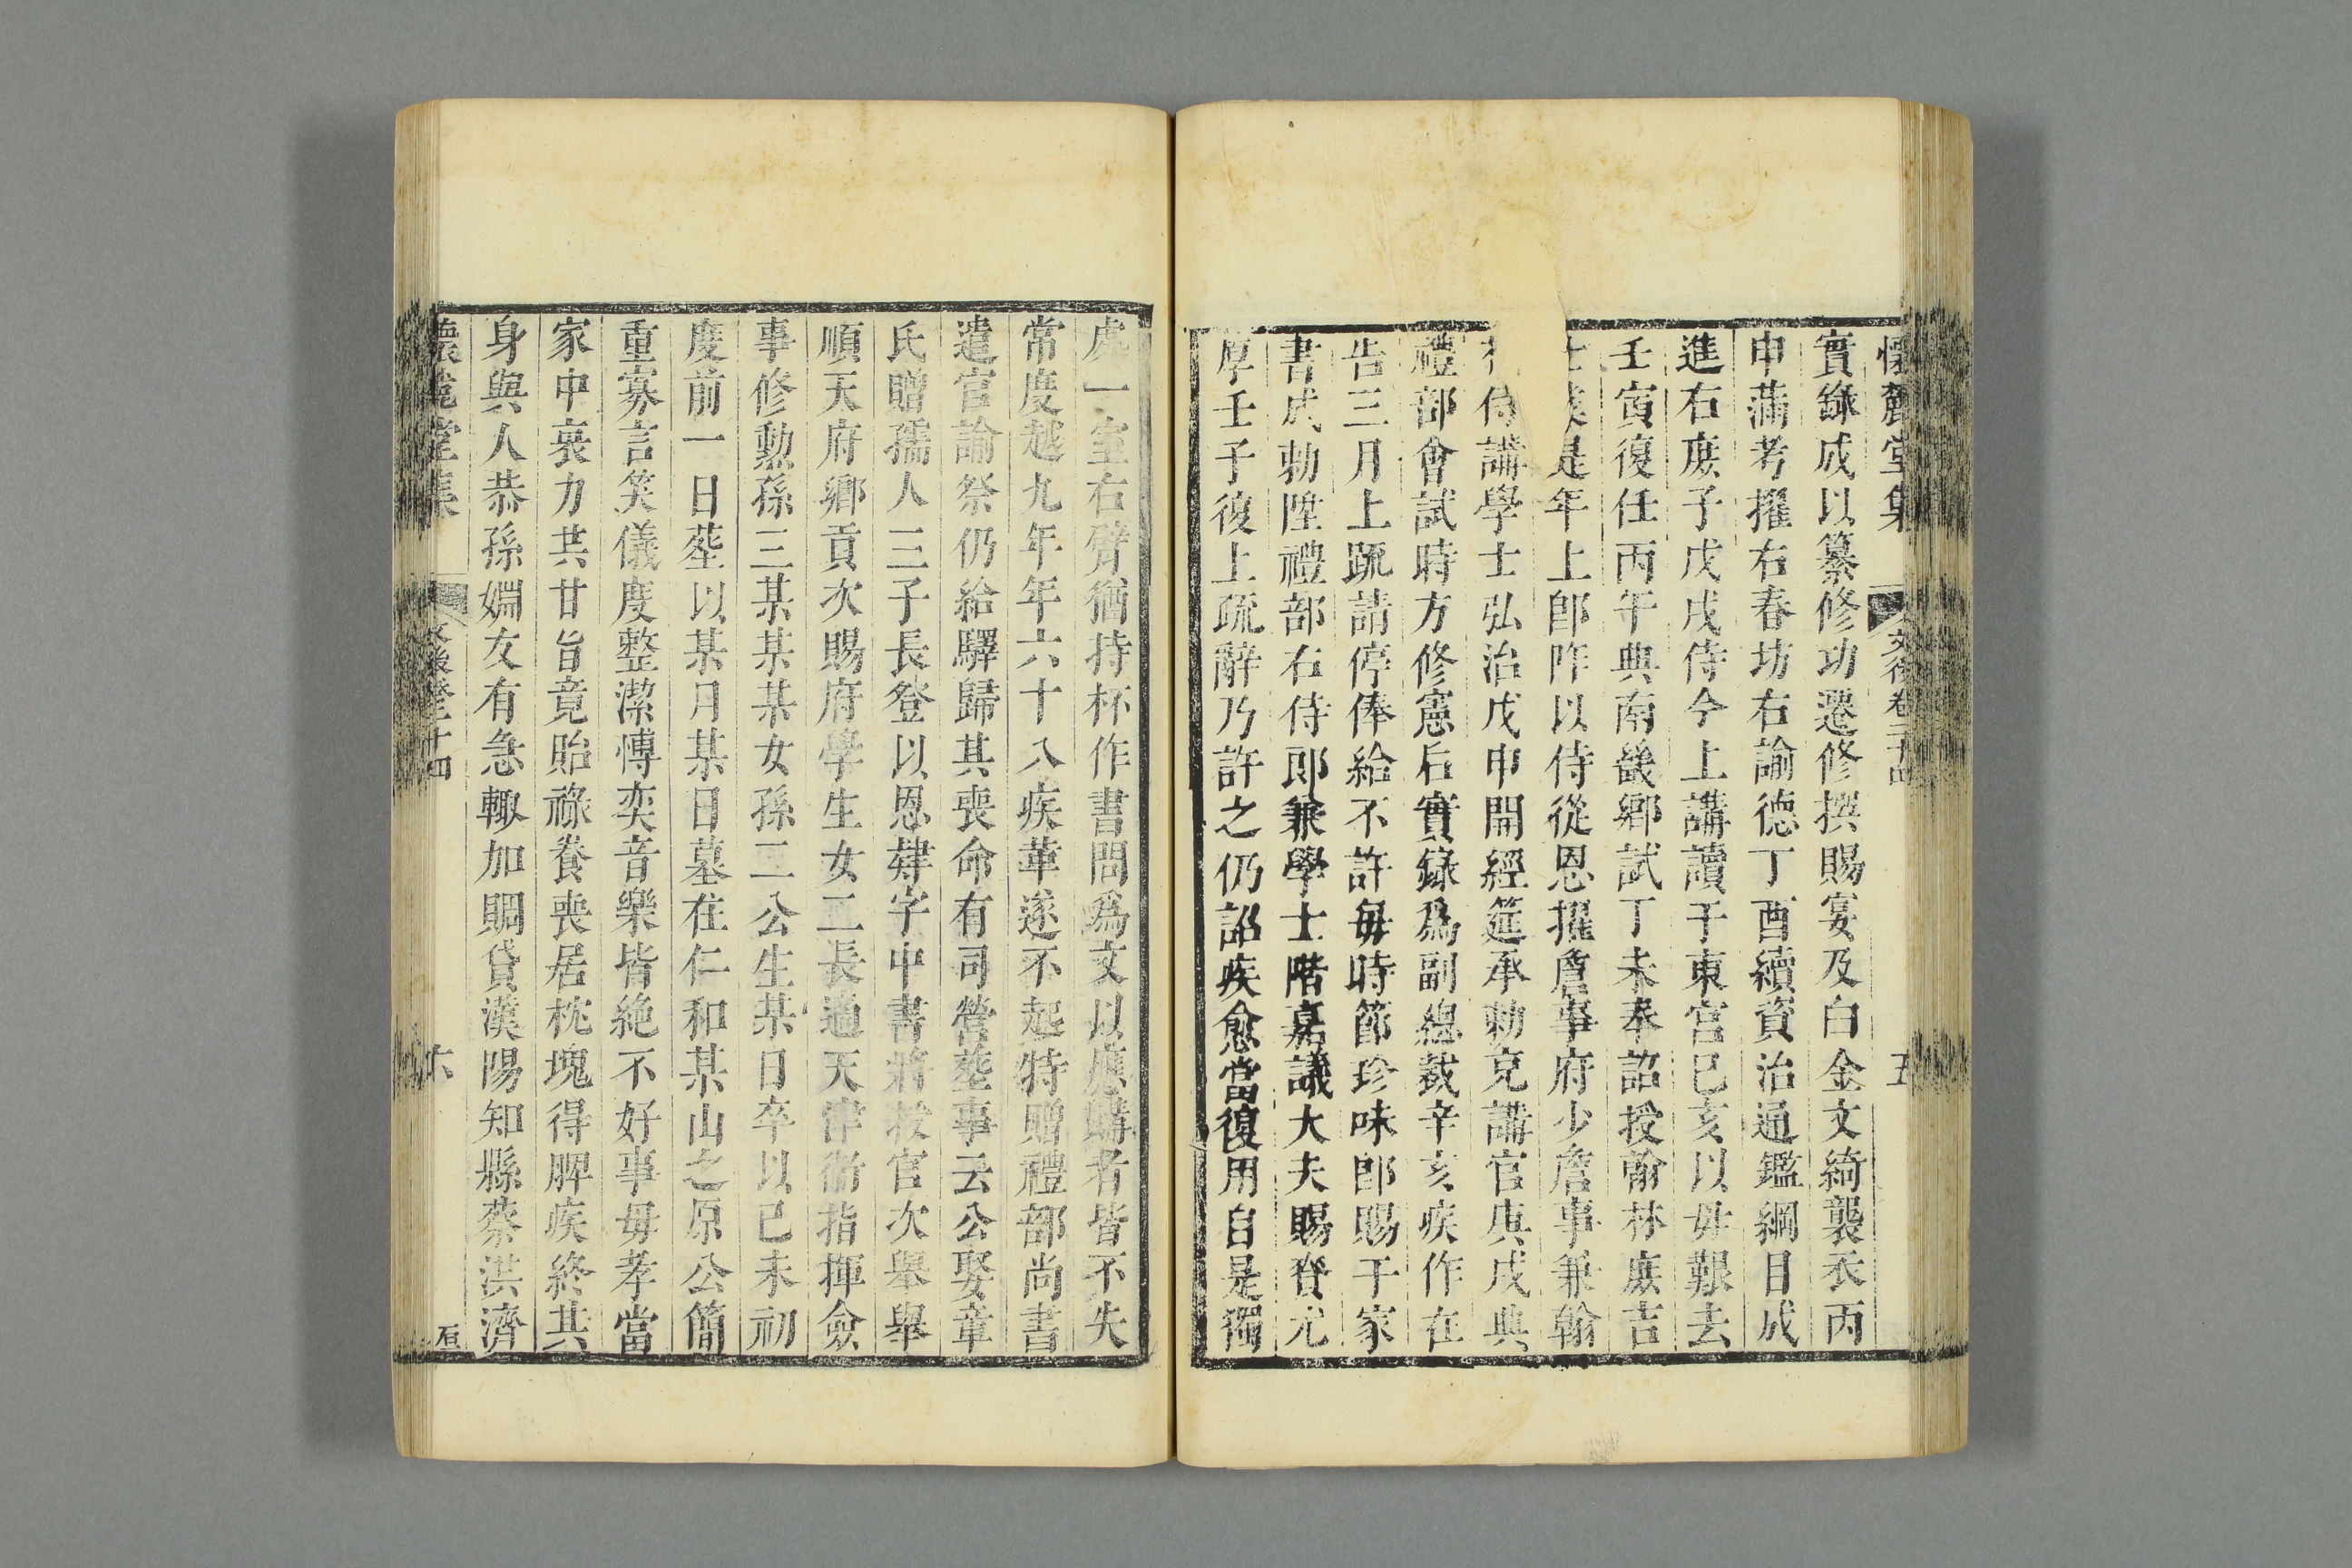 懷麓堂集 文後卷二十四 五
實錄成以纂修功遷修撰賜宴及白金文綺襲衣丙
申滿考擢右春坊右諭德丁酉續資治通鑑綱目成
進右庶子戊戌侍今上講讀于東宮己亥以毋艱去
壬寅復任丙午典南畿鄉試丁未奉詔授翰林庶吉
是年上卽阼以侍從恩擢詹事府少詹事兼翰
侍講學士弘治戊申開經筵承勅充講官庚戌典
禮部會試時方修憲后實錄爲副總裁辛亥疾作在
告三月上疏請停俸給不許毎時節珍味卽賜于家
書成勅陞禮部右侍郎兼學士階嘉議大夫賜賚尤
厚壬子復上疏辭乃許之仍詔疾愈當復用自是獨
處一室右臂猶持杯作書問爲文以應購者皆不失
常度越九年年六十八疾革遂不起特贈禮部尚書
遣官諭祭仍給驛歸其喪命有司營塟事云公娶章
氏贈孺人三子長登以恩肄字中書將授官次舉舉
順天府鄉貢次賜府學生女二長適天津衛指揮僉
事修勳孫三某某某女孫二公生某日卒以己未初
度前一日塟以某月某日墓在仁和某山之原公簡
重寡言笑儀度整潔博奕音樂皆絶不好事毋孝當
家中衰力共甘旨竟貽祿養喪居枕塊得脾疾終其
身與人恭孫婣友有急輙加賙貸漢陽知縣蔡洪濟
懷麓堂集 文後卷二十四 六